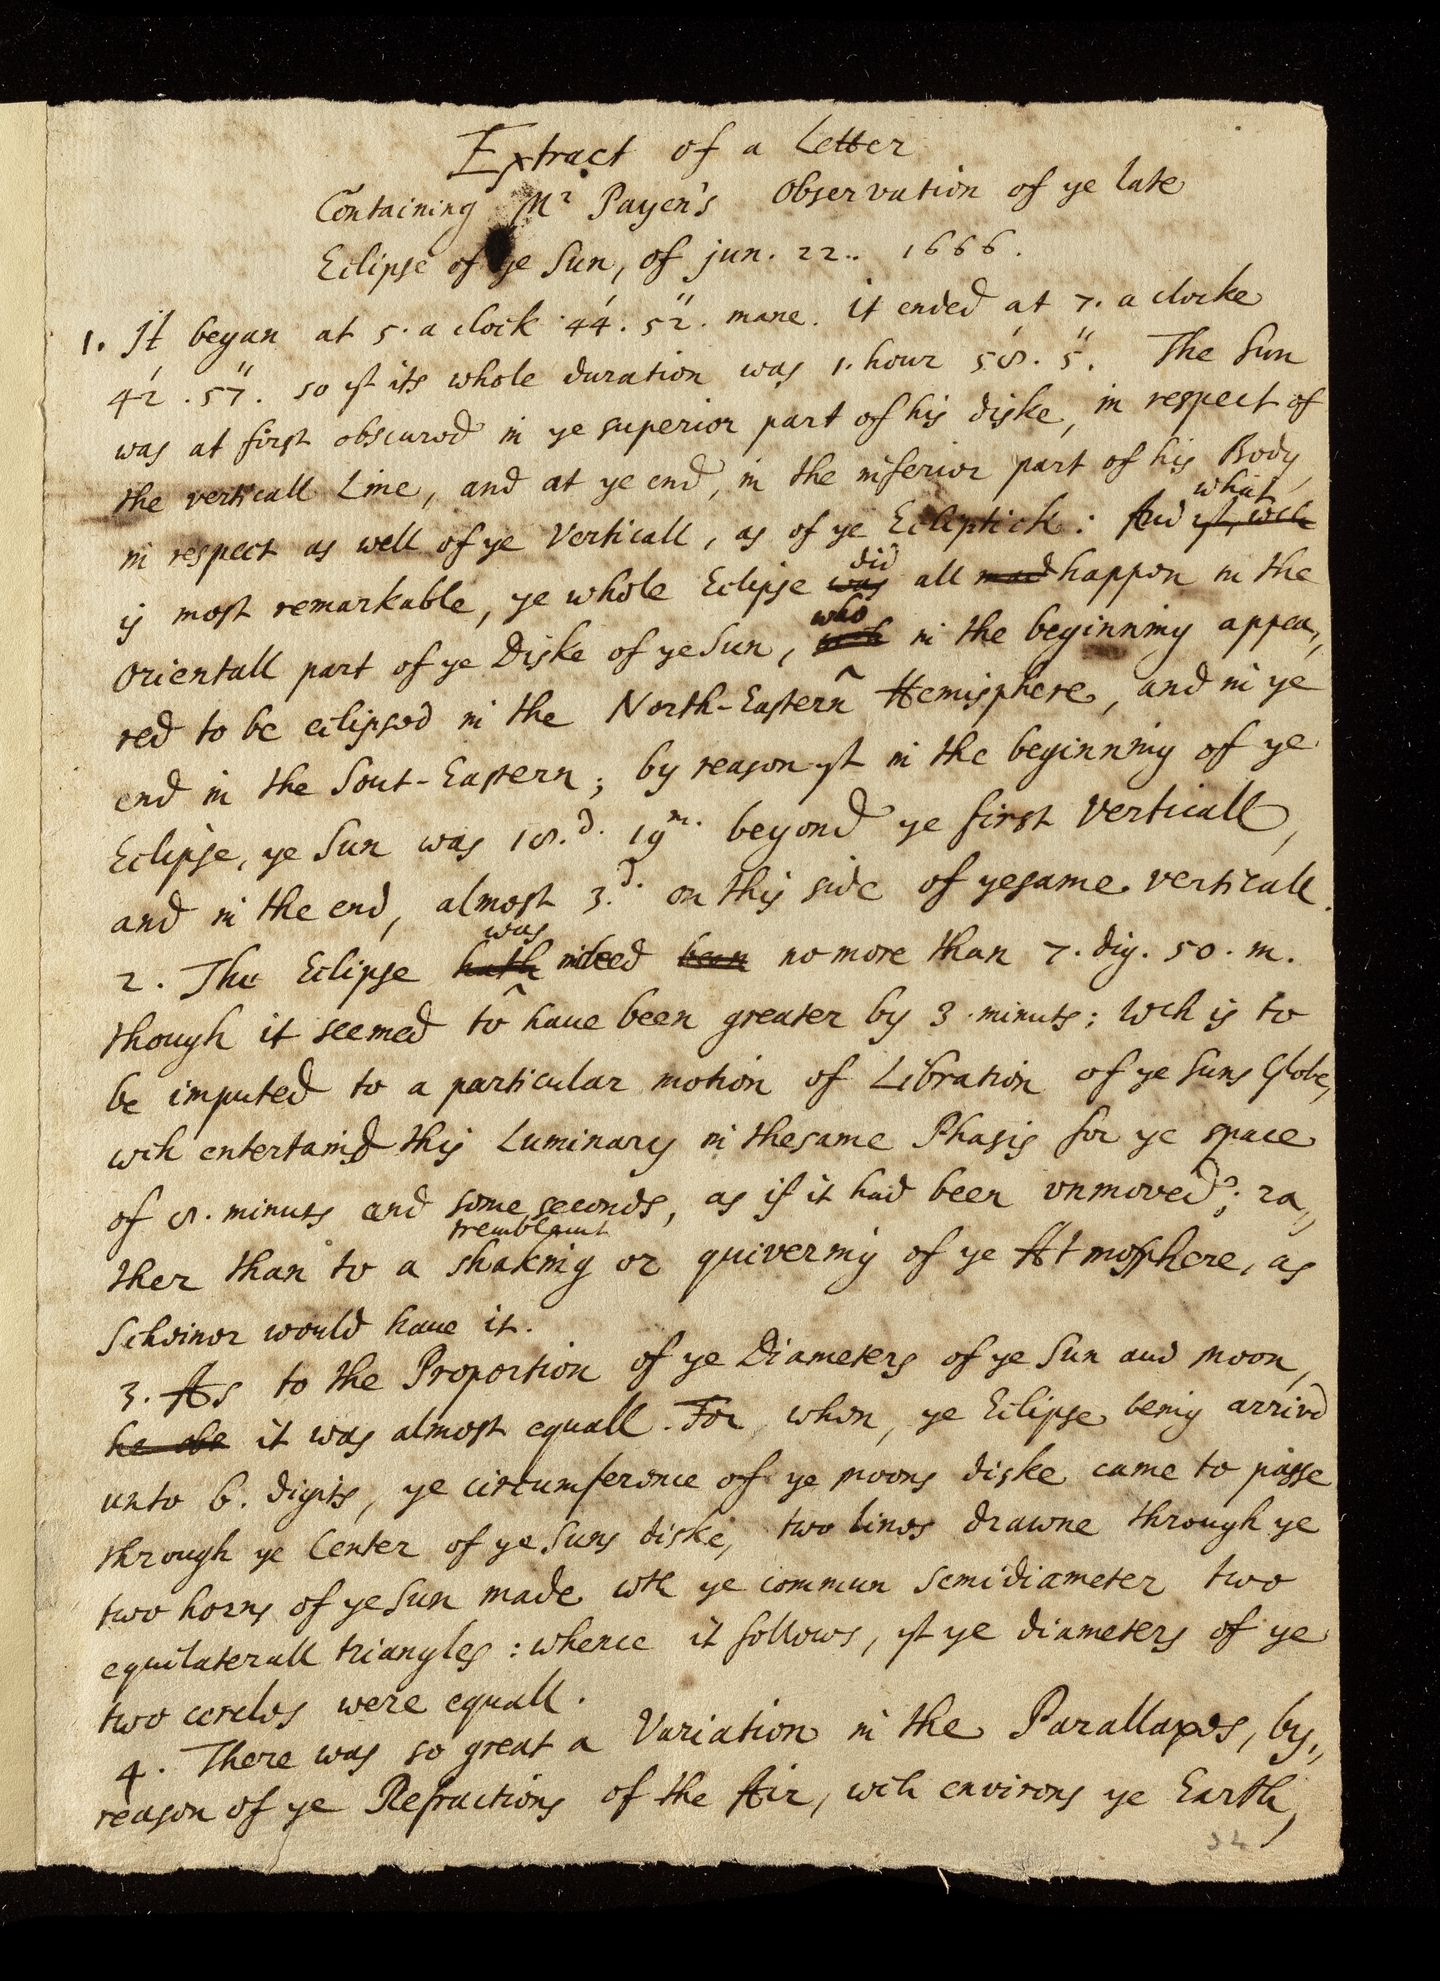 Extract of a Letter
Containing Mr Payen's Observation of ye late
Eclipse of ye Sun, of jun. 22.. 1666.
1. It began at 5. a clock 44'. 52''. mane. it ended at 7. a clocke
42'. 57''. so yt its whole duration was 1. hour 58'. 5''. The Sun
was at first obscured in ye superior part of his diske, in respect of
the verticall Line, and at ye end, in the inferior part of his Body,
what
in respect as well of ye Verticall, as of ye Ecliptick: And yt, wch
did
is most remarkable, ye whole Eclipse was all happen in the
who
Orientall part of ye Diske of ye Sun, in the beginning appea,,
red to be eclipsed in the North-Eastern Hemisphere, and in ye
end in the Sout-Eastern; by reason yt in the beginning of ye
Eclipse, ye Sun was 18.d. 19m. beyond ye first Verticall,
and in the end, almost 3.d. on this side of ye same verticall.
was
2. The Eclipse hath indeed been no more than 7. dig. 50. m.
though it seemed to have been greater by 3. minuts; wch is to
be imputed to a particular motion of Libration of ye Suns Globe,
wch entertaind this Luminary in the same Phasis for ye space
of 8. minuts and some seconds, as if it had been unmoved; ra,,
tremblement
ther than to a shaking or quivering of ye Atmosphere, as
Scheiner would haue it.
3. As to the Proportion of ye Diameters of ye Sun and moon,
he obs it was almost equall. For, when, ye Eclipse being arrived
unto 6. digits, ye circumference of ye moons diske came to passe
through ye Center of ye Suns diske, two lines drawne through ye
two horns of ye Sun made wth ye commun semidiameter two
equilaterall triangles: whence it follows, yt ye diameters of ye
two cercles were equall.
4. There was so great a Variation in the Parallaxes, by,,
reason of ye Refractions of the Air, wch environs ye Earth,